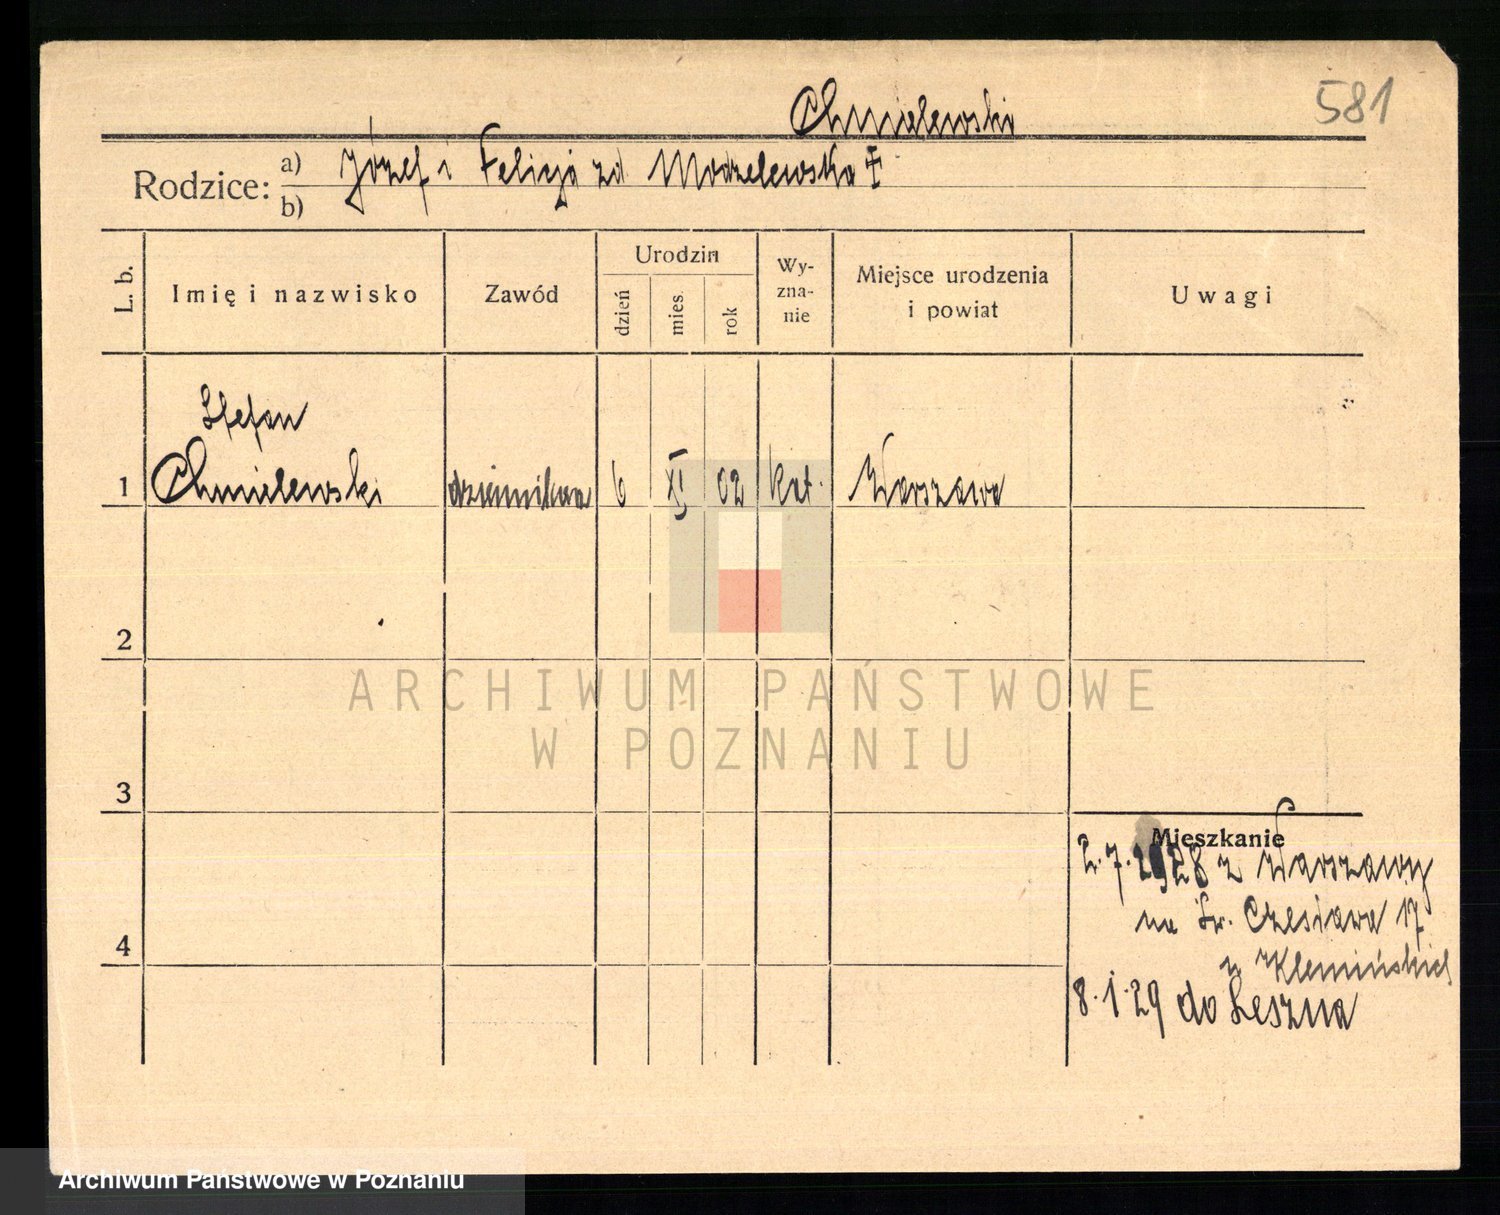 581
Chmielewski
Rodzice: a) Józef i Felicja zd. Modzelewska ‡
b)
L. b.
Imię i nazwisko
Zawód
Urodzin
dzień
mies.
rok
Wy-
zna-
nie
Miejsce urodzenia
i powiat
Uwagi
Stefan
1 Chmielewski 6 XI 02 kat. Warszawa
2
3
4
Mieszkanie
2.7.1928 z Warszawy
na Św. Czesława 17
u Klemińskich
8.1.29 do Leszna
ARCHIWUM PAŃSTWOWE
W POZNANIU
Archiwum Państwowe w Poznaniu